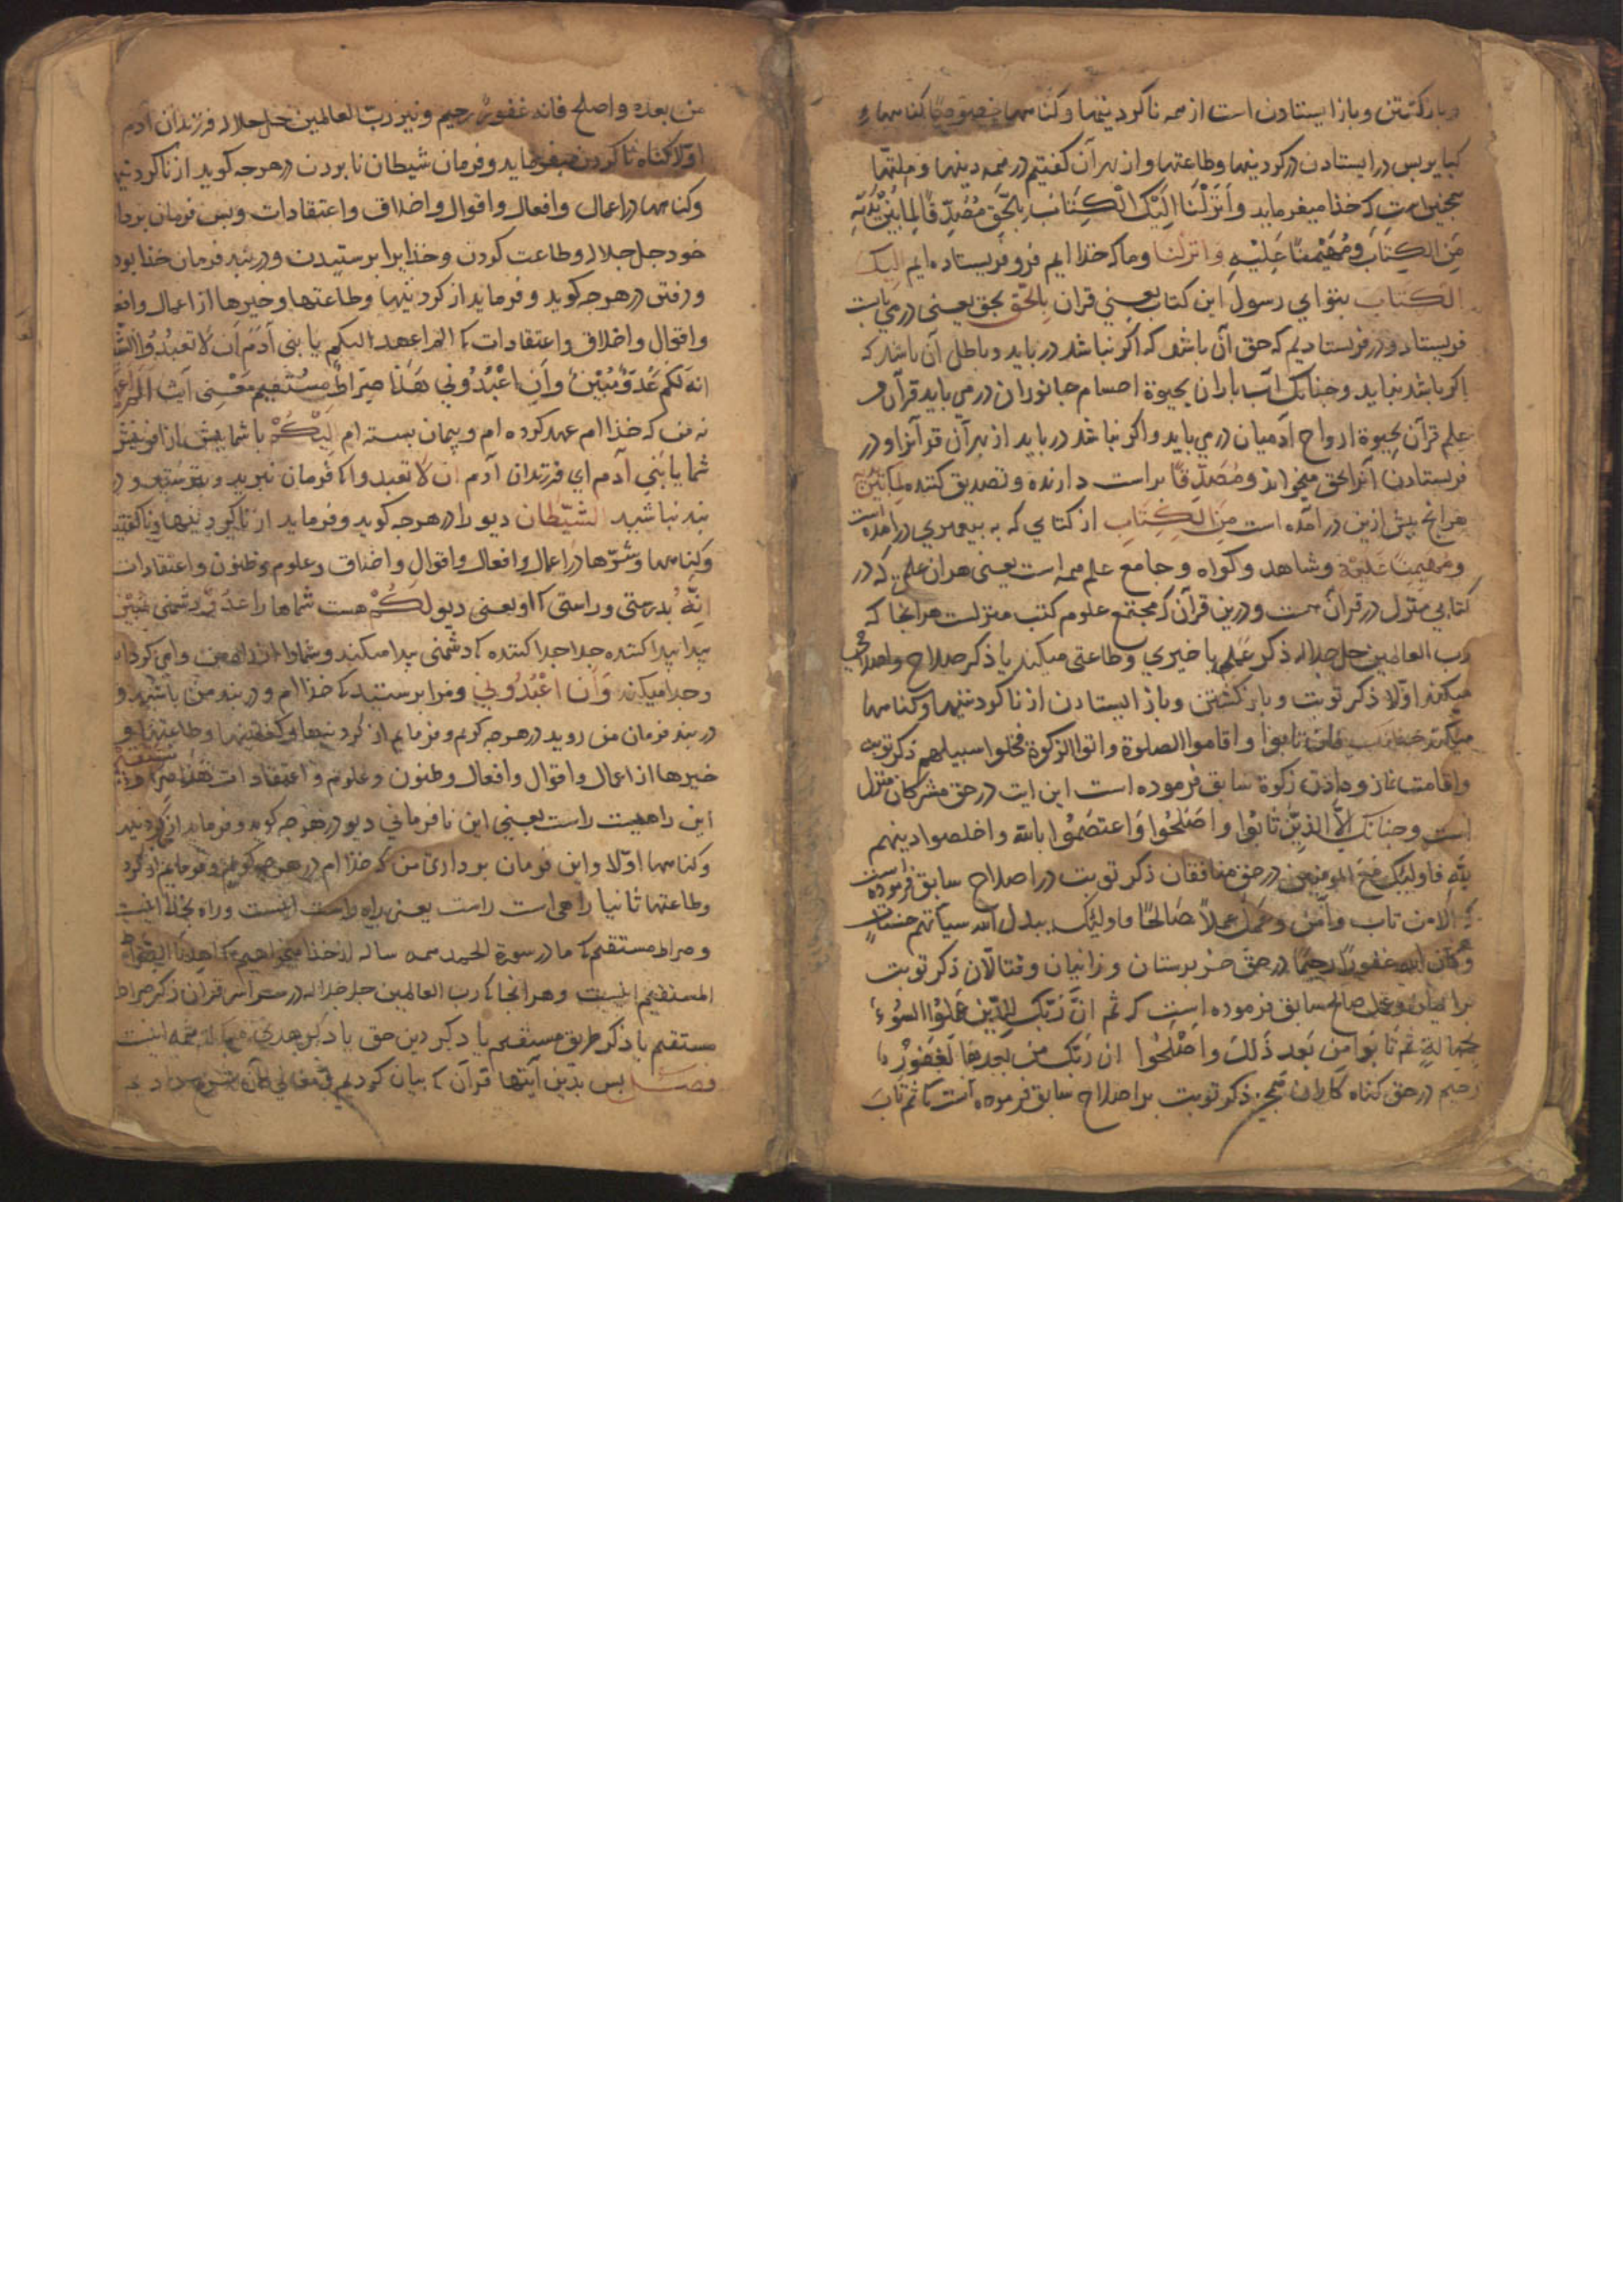 و بازکشتن و باز ایستادن است از همه ناکردنیها و کناهها خصوصا کناههاء
کبایر بس در ایستادن در کردنیها و طاعتها و از بهر آن کفتیم در همه دینها و ملتها
همجنین است که خذا میفرماید وَأَنْزَلْنَا اِلَیْکَ الْکِتَابَ بِالْحَقِّ مُصَدِّقًا لِمَا بَیْنَ یَدَیْهِ
مِنَ الْکِتَابِ وَمُهَیْمِنًا عَلَیْهِ وَانزلنا و ما که خذاایم فرو فریستاده ایم الیک
الکتاب بتو ای رسول این کتاب یعنی قران بالحق بحق یعنی در می بایست
فریستاد و در فریستادیم که حق آن باشد که اکر نباشد در باید و باطل آن باشد که
اکر باشد نباید و جنانک آب باران بحیوة اجسام جانوران در می باید قرآن و
علم قرآن بحیوة ارواح آدمیان در می باید و اکر نباشد در باید از بهر آن قرآنرا و در
فریستادن آنرا بحق میخواند و مُصَدِّقًا براست دارنده و تصدیق کننده لما بین یدیه
هرانج بیش ازین در آمده است مِنَ الْکِتَابِ از کتابی که به بیغمبری در آمده است
و مُهَیْمِنًا عَلَیْهِ و شاهد و کواه و جامع علم همه است یعنی هران علم که در
کتابی منزل در قران هست و درین قرآن که مجتمع علوم کتب منزلست هرانجا که
رب العالمین جل جلاله ذکر عملی یا خیری و طاعتی میکند یا ذکر صلاح و اصلاحی
میکند اولا ذکر توبت و بازکشتن و باز ایستادن از ناکردنیها و کناهها
میکند جنانک فان تابوا و اقاموا الصلوة و اتوا الزکوة فخلوا سبیلهم ذکر توبه
و اقامت نماز و دادن زکوة سابق فرموده است این ایت در حق مشرکان منزل
است و جنانک اِلَّا الَّذِینَ تَابُوا وَاَصْلَحُوا وَاعْتَصَمُوا بالله و اخلصوا دینهم
لِلّهِ فاولیک مع المومنین در حق منافقان ذکر توبت در اصلاح سابق فرموده است
که الا من تاب وآمن وعمل عملا صَالحًا فاولیک یبدل الله سیآتهم حسنات
وکان الله غفورًا رحیمًا در حق بت برستان و زانیان و قتالان ذکر توبت
بر ایمان و عمل صالح سابق فرموده است که ثم اِنَّ رَبَّکَ لِلَّذِینَ عَمِلُوا السُّوءَ
بِجَهَالَةٍ ثُمَّ تَابُوا مِن بَعد ذَلکَ واَصْلَحُوا ان رَبّک من بَعدِهَا لَغَفُورٌ
رحیم در حق کناه کاران ذکر توبت بر اصلاح سابق فرموده است که ثم تابَ
من بعده و اصلح فانه غفورٌ رحیم و نیز رب العالمین جل جلاله فرزندان آدم
اولا کناه ناکردن میفرماید و فرمان شیطان نابردن در هرجه کوید از ناکردنیها
و کناهها در اعمال و افعال و اقوال و اخلاق و اعتقادات و بس فرمان بردن
خود جل جلاله و طاعت کردن و خذایرا برستیدن و در بند فرمان خذا بودن
و رفتن در هرجه کوید و فرماید از کردنیها و طاعتها و خیرها از اعمال و افعال
و اقوال و اخلاق و اعتقادات که الم اعهد الیکم یا بنی آدم اَن لَا تعبُدُوا الشیطان
انه لکم عَدُوٌّ مُبِینٌ وَأَنِ اعْبُدُونِی هَذَا صِرَاطٌ مُسْتَقِیمٌ معنی آیت الم اعهد
نه من که خذاام عهد کرده ام و پیمان بسته ام اِلَیْکُمْ با شما بیش از آفرینش
شما یا بَنِی آدم ای فرزندان آدم ان لَا تعبدوا که فرمان نبرید و نبرستید و در
بند نباشید الشیطان دیو را در هرجه کوید و فرماید از ناکردنیها و ناکفتنیها
و کناهها و شرها در اعمال و افعال و اقوال و اخلاق و علوم و ظنون و اعتقادات
اِنَّهُ بدرستی و راستی که او یعنی دیو لَکُمْ هست شماها را عَدُوٌّ دشمنی مُبِین
بیدا بیدا کننده جدا جدا کننده که دشمنی بیدا میکند و شما را از راه
و جدا میکند وَأَنِ اعْبُدُونِی و مرا برستید که خذاام و در بند من باشید و
در بند فرمان من روید در هرجه کویم و فرمایم از کردنیها و کفتنیها و طاعتها و
خیرها از اعمال و اقوال و افعال و ظنون و علوم و اعتقادات هَذَا صِرَاطٌ مستقیم
این راهیست راست یعنی این نافرمانی دیو در هرجه کوید و فرماید از ناکردنیها
و کناهها اولا و این فرمان برداری من که خذاام در هرجه کویم و فرمایم از کردنیها
و طاعتها ثانیا راهی است راست یعنی راه راست اینست و راه بخدا اینست
و صراط مستقیم که ما در سورة الحمد همه ساله از خذا میخواهیم که اهدنا الصراط
المستقیم اینست و هرانجا که رب العالمین جل جلاله در سراسر قران ذکر صراط
مستقیم یا ذکر طریق مستقیم یا ذکر دین حق یا ذکر هدی میکند همه اینست
فصل بس بدین آیتها قرآن که بیان کردیم